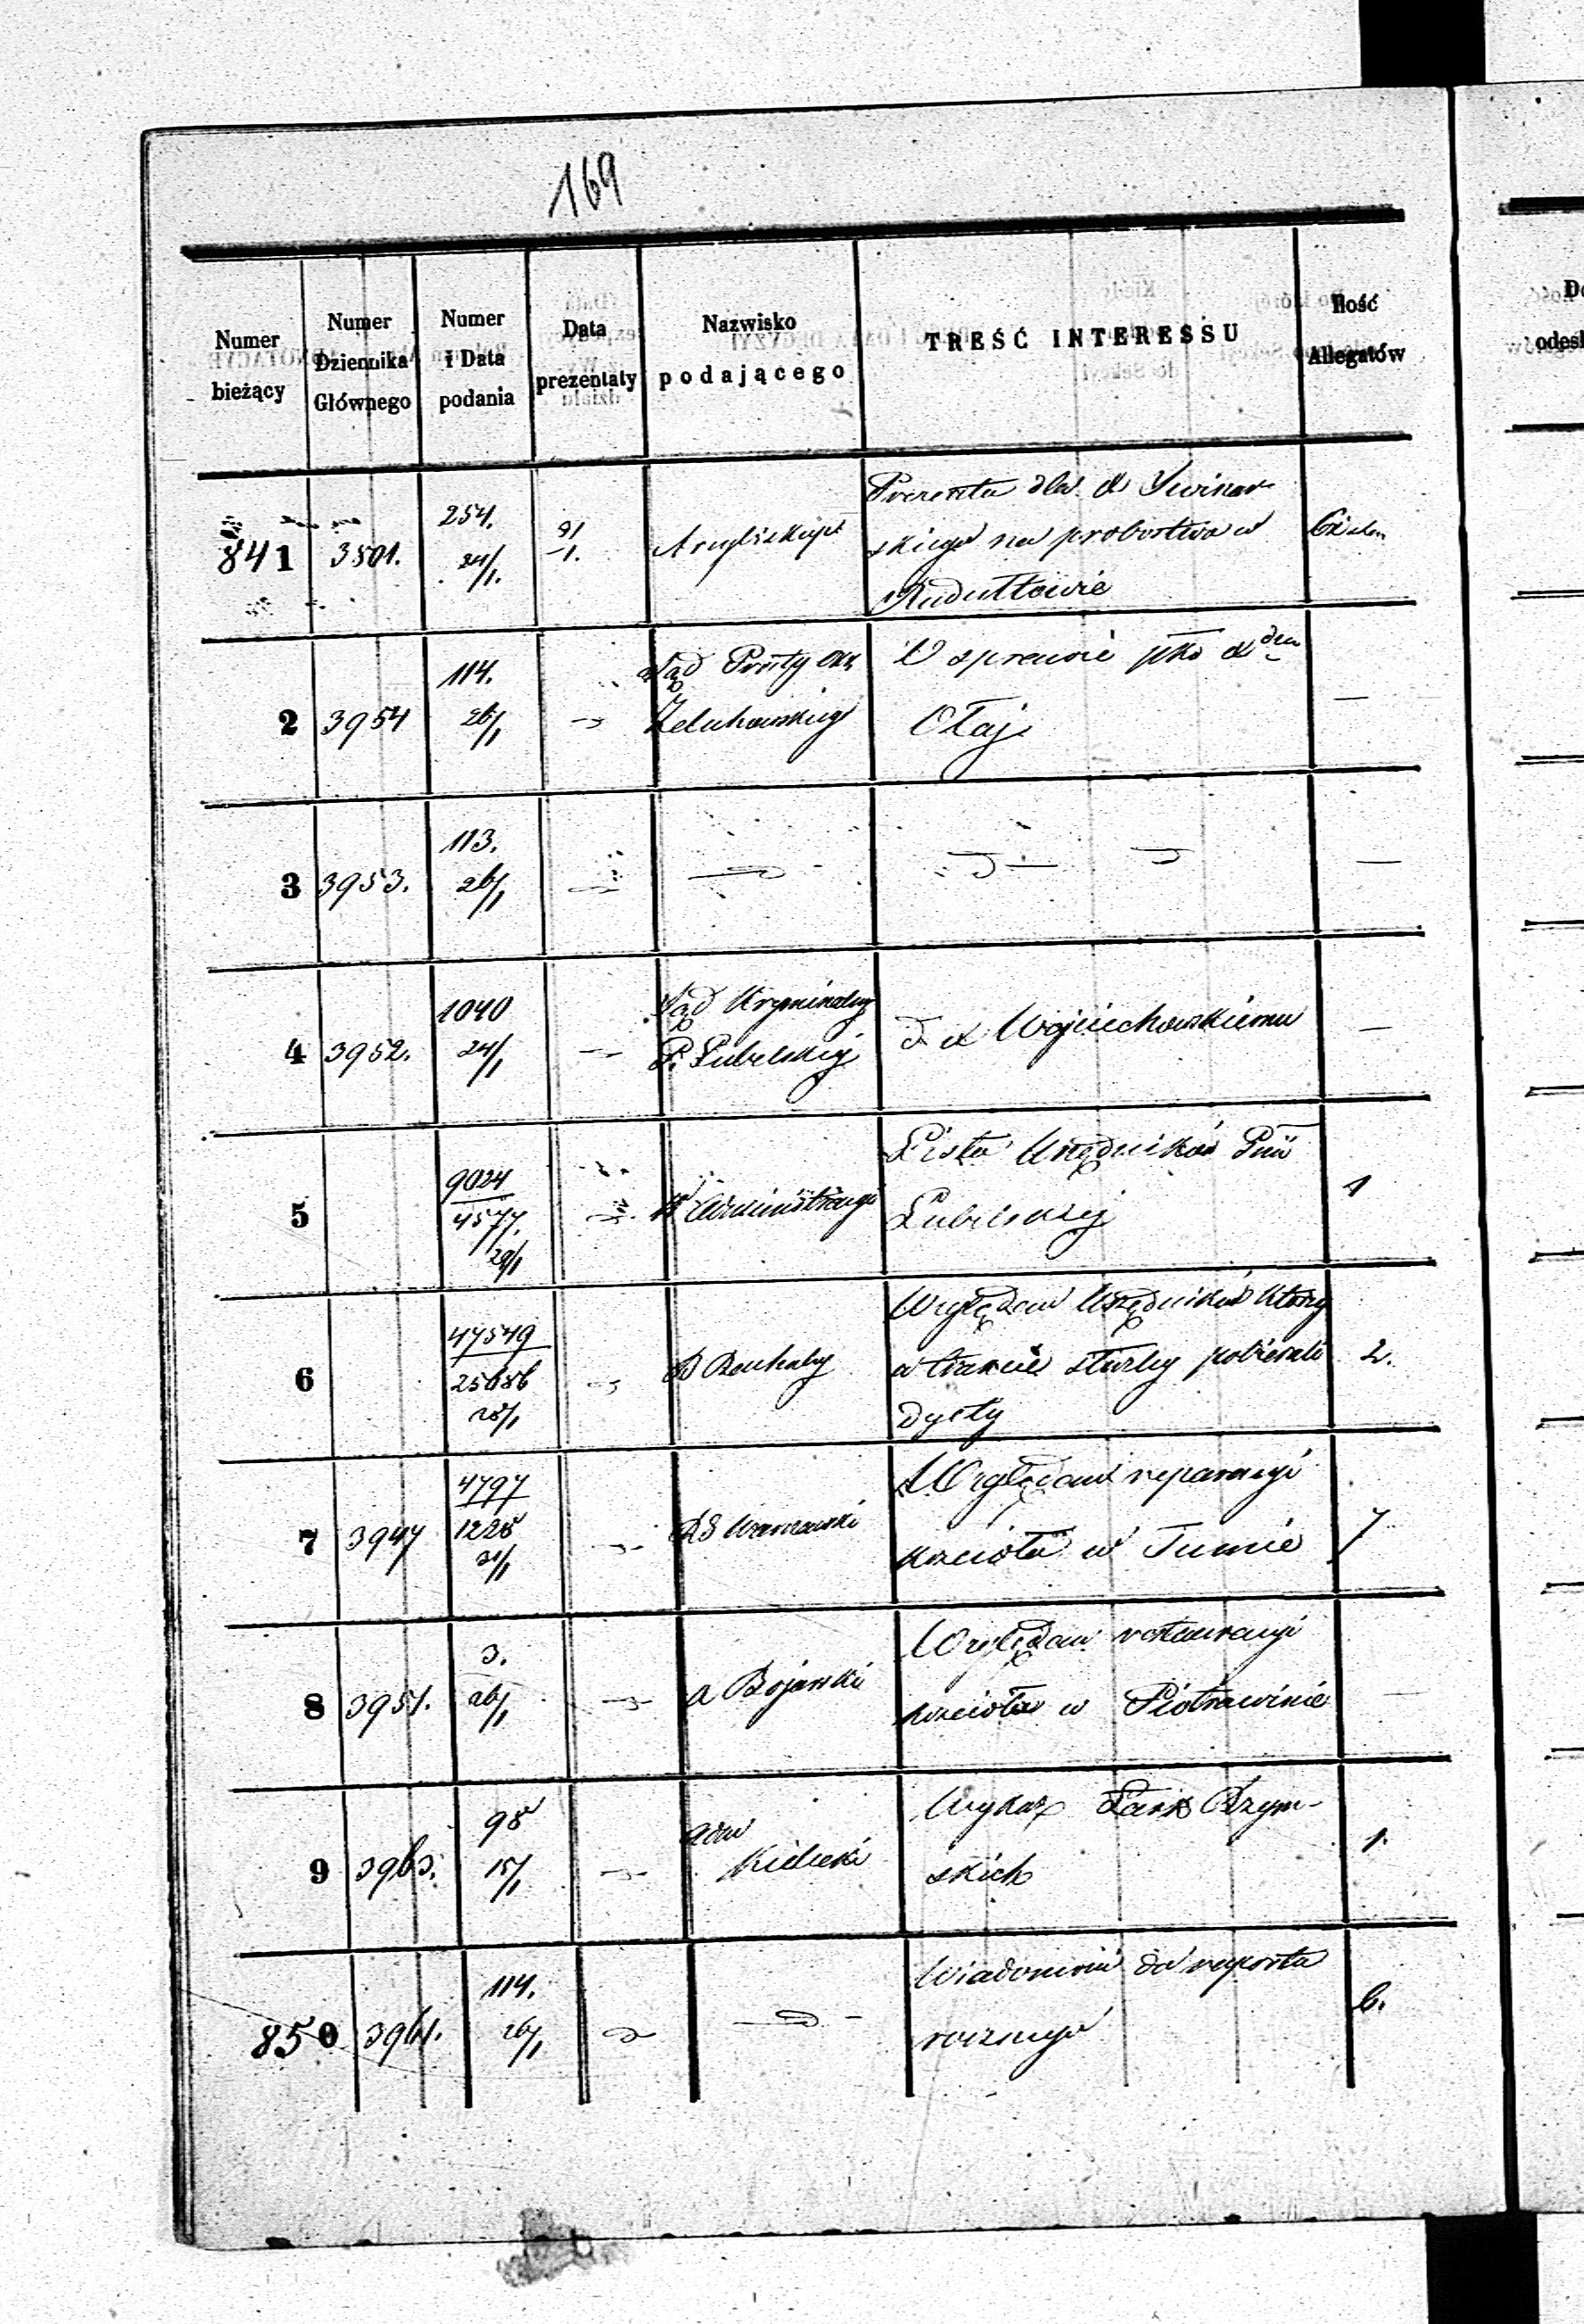 169
Numer bieżący
Numer Dziennika Głównego
Numer i Data podania
Data prezentaty
Nazwisko podającego
TREŚĆ INTERESSU
Ilość Allegatów
841 3501. 254. 24/1. 31/1. Arcybiskup
Prezenta dla X
skiego na probostwo w
2 3954 114. 26/1
Sąd Prosty
Żelechowski
W sprawie pko X
Ołaj
—
3 3953. 113. 26/1 —
4 3952. 1040 24/1
Sąd Kryminalny
P. Lubelskiej
d X Wojciechowskiemu
—
5 9024 4577. 29/1
W Administracyi
Lista Urzędników Gub
Lubelskiej
1
6 47549 25686 28/1
Względem Urzędników którzy
w trakcie służby pobierali
dyety
2.
7 3947 4797 1228 31/1
RG Warszawski
Względem reparacyi
kościoła w Tumie
7
8 3951. 3. 26/1
X Bojarski
Względem restauracyi
kościoła w Piotrawinie
—
9 3963. 98 15/1
Adm
Kielecki
Wykaz Łask Rzym-
skich
1.
850 3961. 114. 26/1
Wiadomości do raportu
rocznego
6.